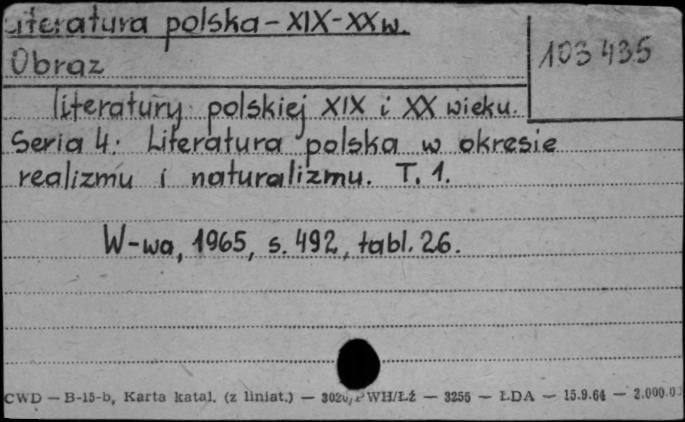 Literatura polska - XIX-XX w.
103 435
Obraz
literatury polskiej XIX i XX wieku.
Seria 4: Literatura polska w okresie
realizmu i naturalizmu. T. 1.
W-wa, 1965, s. 492, tabl. 26.
CWD — B-15-b, Karta katal. (z liniat.) — PWH/Łź — 3255 — ŁDA — 15.9.64 —